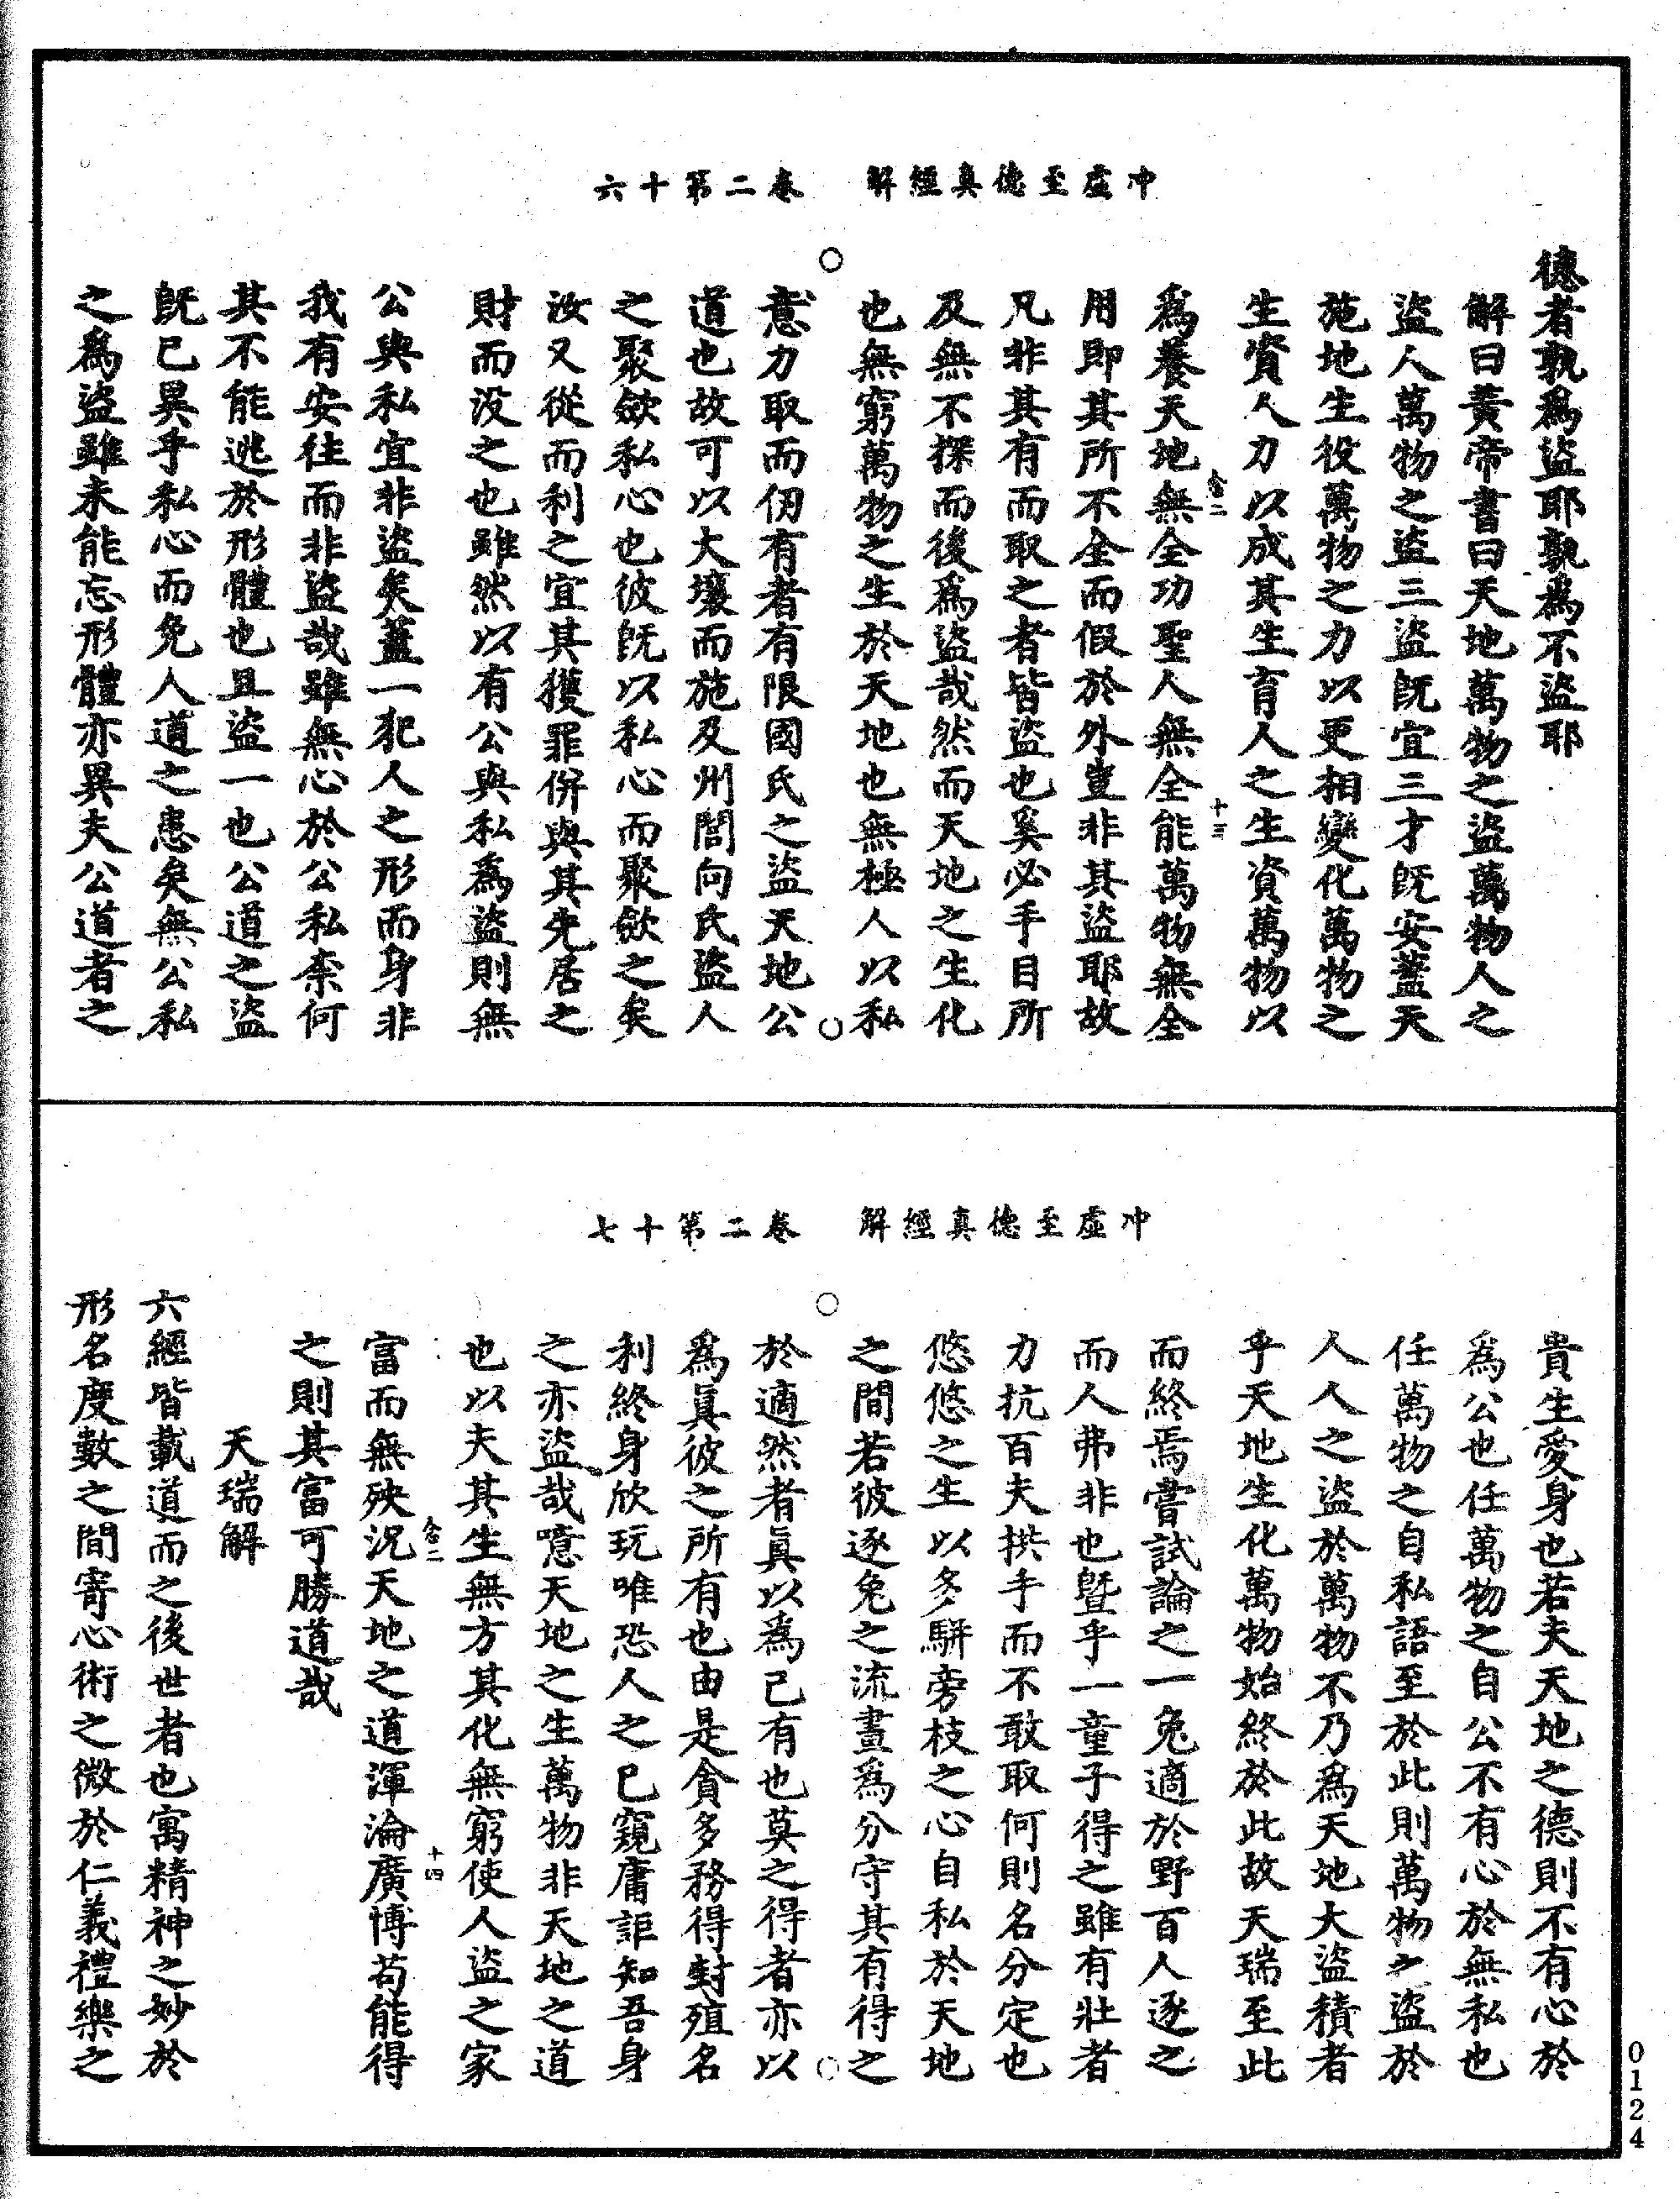 冲虛至德真經解　卷二第十六
德者孰爲盜耶孰爲不盜耶
解曰黃帝書曰天地萬物之盜萬物人之
盜人萬物之盜三盜旣宜三才旣安蓋天
施地生役萬物之力以更相變化萬物之
生資人力以成其生育人之生資萬物以
爲養天地無全功聖人無全能萬物無全
用即其所不全而假於外豈非其盜耶故
凡非其有而取之者皆盜也奚必手目所
及無不探而後爲盜哉然而天地之生化
也無窮萬物之生於天地也無極人以私
意力取而仞有者有限國氏之盜天地公
道也故可以大壤而施及州閭向氏盜人
之聚歛私心也彼旣以私心而聚歛之矣
汝又從而利之宜其獲罪併與其先居之
財而没之也雖然以有公與私爲盜則無
公與私宜非盜矣蓋一犯人之形而身非
我有安往而非盜哉雖無心於公私柰何
其不能逃於形體也且盜一也公道之盜
旣已異乎私心而免人道之患矣無公私
之爲盜雖未能忘形體亦異夫公道者之
冲虛至德真經解　卷二第十七
貴生愛身也若夫天地之德則不有心於
爲公也任萬物之自公不有心於無私也
任萬物之自私語至於此則萬物之盜於
人人之盜於萬物不乃爲天地大盜積者
乎天地生化萬物始終於此故天瑞至此
而終焉嘗試論之一兔適於野百人逐之
而人弗非也曁乎一童子得之雖有壯者
力抗百夫拱手而不敢取何則名分定也
悠悠之生以多駢旁枝之心自私於天地
之間若彼逐兔之流晝爲分守其有得之
於適然者眞以爲己有也莫之得者亦以
爲眞彼之所有也由是貪多務得封殖名
利終身欣玩唯恐人之已窺庸詎知吾身
之亦盜哉噫天地之生萬物非天地之道
也以夫其生無方其化無窮使人盜之家
富而無殃況天地之道渾淪廣博苟能得
之則其富可勝道哉
天瑞解
六經皆載道而之後世者也寓精神之妙於
形名度數之間寄心術之微於仁義禮樂之
十三
十四
0124